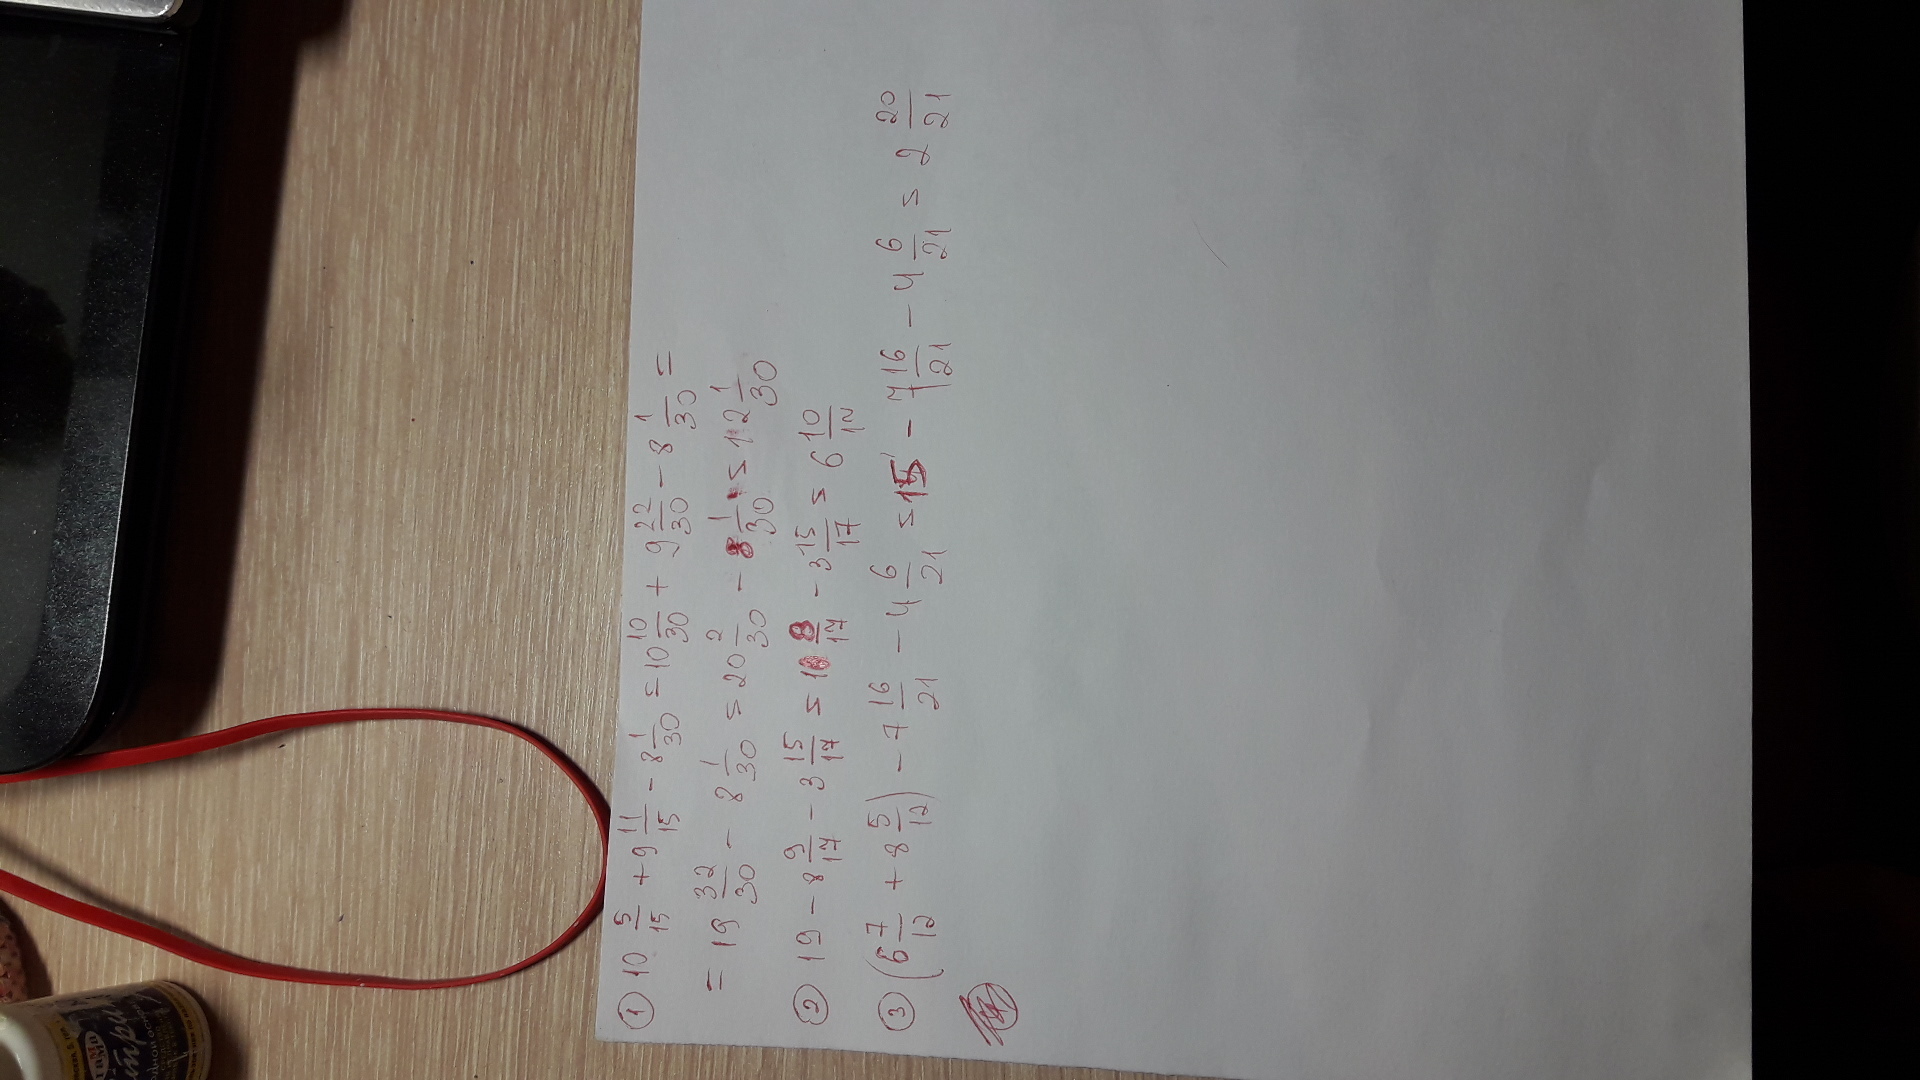 ① 10 5/15 + 9 11/15 - 8 1/30 = 10 10/30 + 9 22/30 - 8 1/30 =
= 19 32/30 - 8 1/30 = 20 2/30 - 8 1/30 = 12 1/30
② 19 - 8 9/17 - 3 15/17 = 10 8/17 - 3 15/17 = 6 10/17
③ (6 7/12 + 8 5/12) - 7 16/21 - 4 6/21 = 15 - 7 16/21 - 4 6/21 = 2 20/21